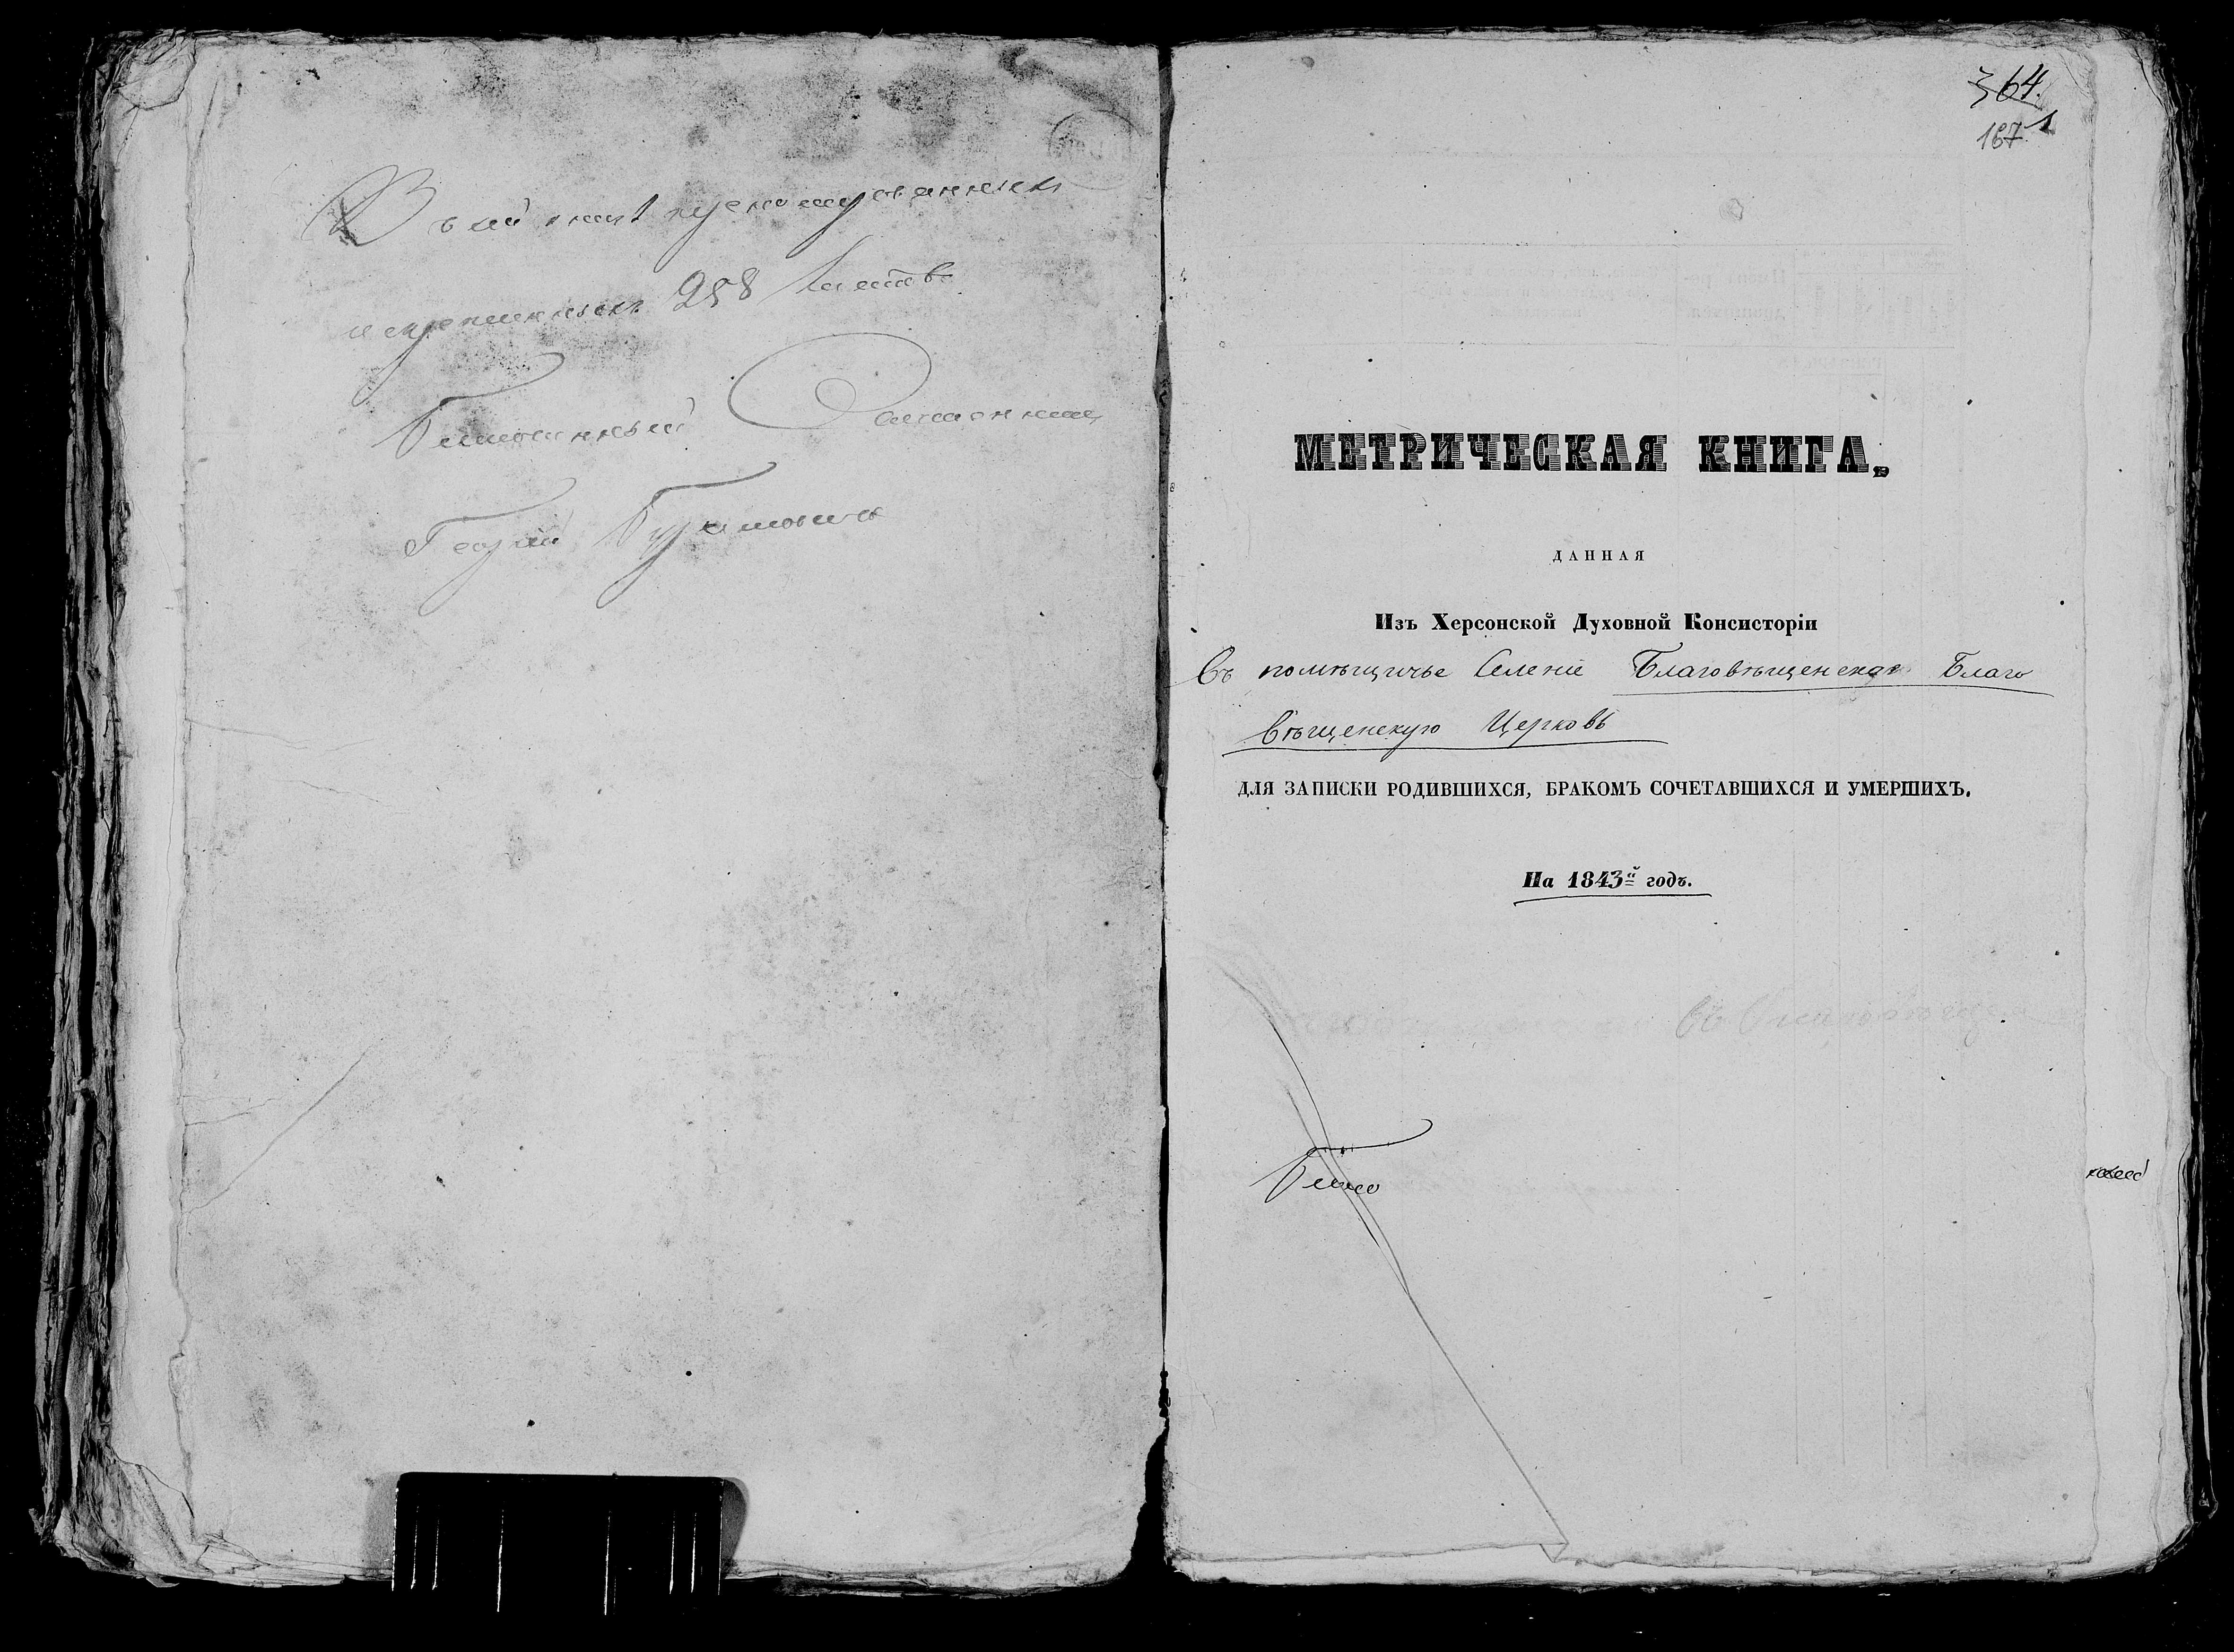 Въ сей книгѣ пренумерованныхъ
и скрепленныхъ 258 листовъ
Георгій
364.
167 1
МЕТРИЧЕСКАЯ КНИГА,
ДАННАЯ
Изъ Херсонской Духовной Консисторіи
Въ помѣщичье Селеніе Благовѣщенское Благо
вѣщенскую Церковь
ДЛЯ ЗАПИСКИ РОДИВШИХСЯ, БРАКОМЪ СОЧЕТАВШИХСЯ И УМЕРШИХЪ.
На 1843й годъ.